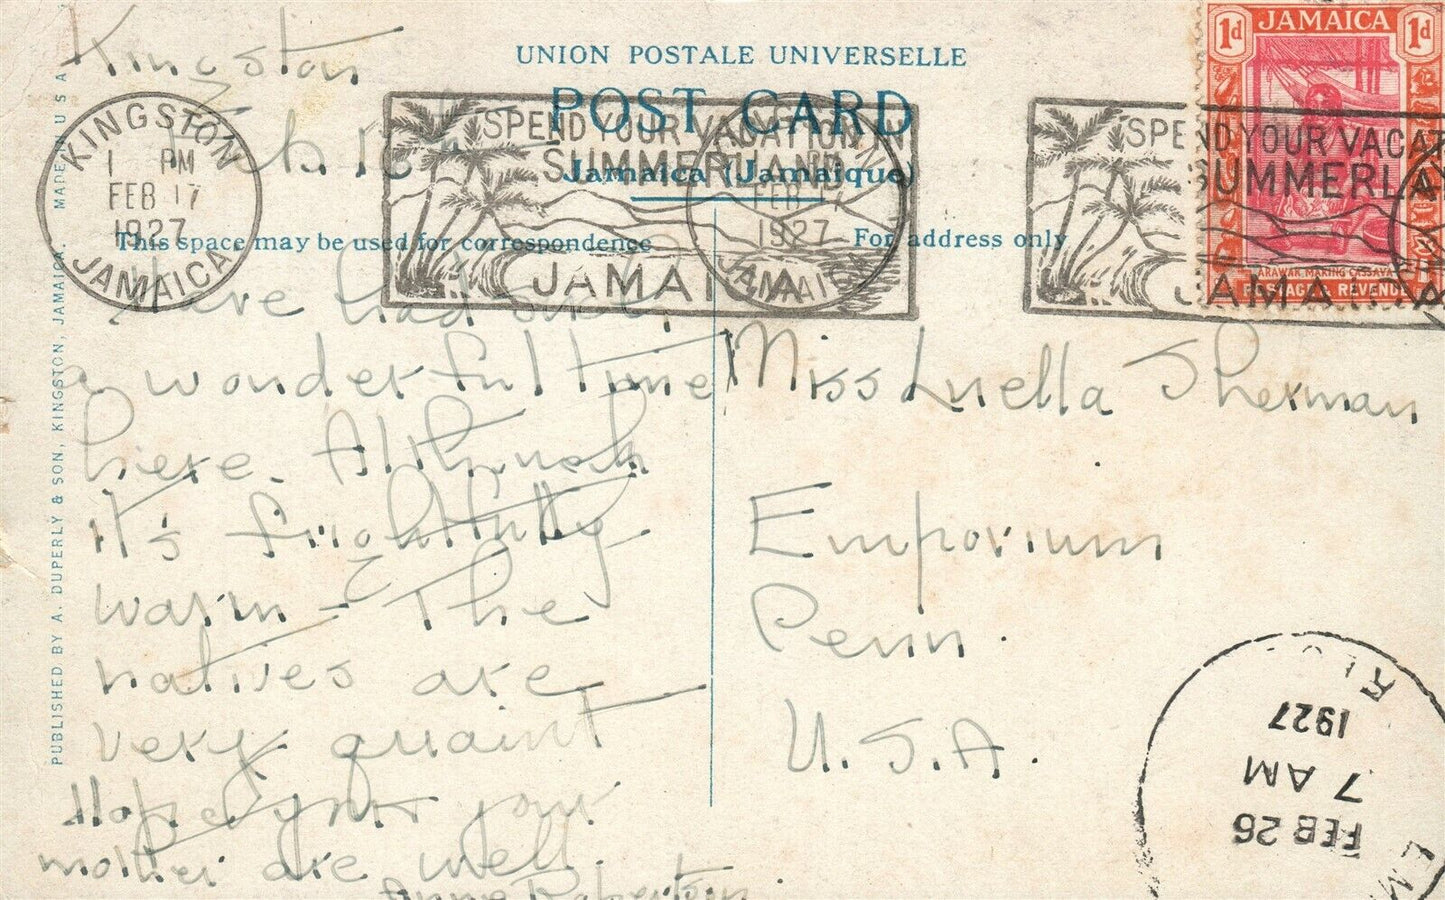 Kingston
Feb. 16th
UNION POSTALE UNIVERSELLE
POST CARD
Jamaica (Jamaïque)
This space may be used for correspondence
For address only
KINGSTON
1 PM
FEB 17
1927
JAMAICA
SPEND YOUR VACATION IN
SUMMERLAND
JAMAICA
FEB 17
1927
JAMAICA
SPEND YOUR VACAT
SUMMERLA
JAMA
1d JAMAICA 1d
ARAWAK MAKING CASSAVA
POSTAGE & REVENUE
Have had such
a wonderful time
here. Although
it's frightfully
warm - The
natives are
very quaint
Hope you & your
mother are well.
Anne Robertson.
Miss Luella Sherman
Emporium
Penn.
U.S.A.
PUBLISHED BY A. DUPERLY & SON, KINGSTON, JAMAICA. MADE IN U S A
EM
FEB 26
7 AM
1927